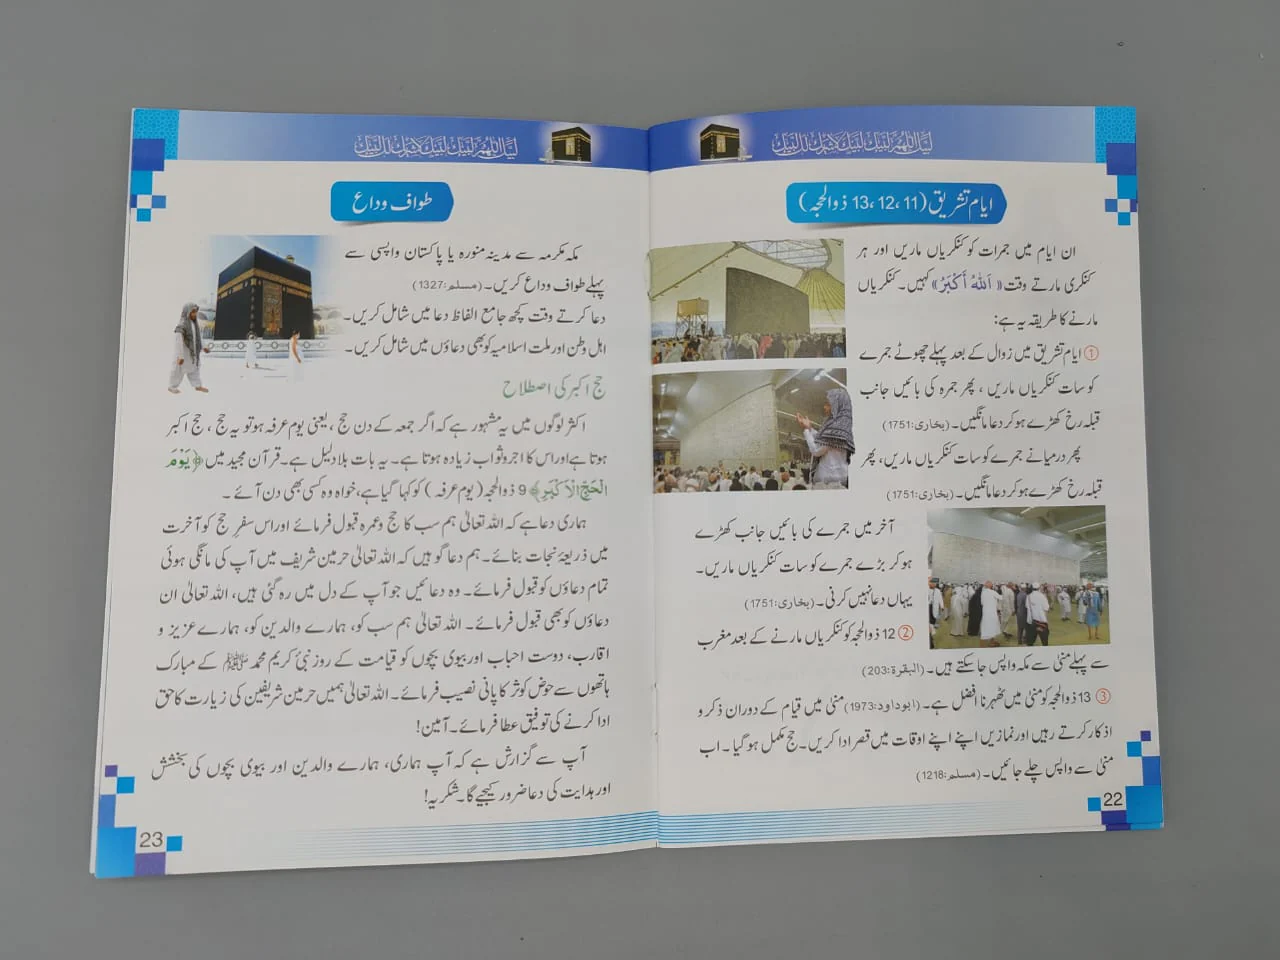 لبيك اللهم لبيك لبيك لا شريك لك لبيك
ایام تشریق (11، 12، 13 ذوالحجہ)
ان ایام میں جمرات کو کنکریاں ماریں اور ہر
کنکری مارتے وقت «اَللهُ أَكْبَرُ» کہیں۔ کنکریاں
مارنے کا طریقہ یہ ہے:
① ایام تشریق میں زوال کے بعد پہلے چھوٹے جمرے
کو سات کنکریاں ماریں ، پھر جمرہ کی بائیں جانب
قبلہ رخ کھڑے ہو کر دعا مانگیں۔ (بخاری:1751)
پھر درمیانے جمرے کو سات کنکریاں ماریں، پھر
قبلہ رخ کھڑے ہو کر دعا مانگیں۔ (بخاری:1751)
آخر میں جمرے کی بائیں جانب کھڑے
ہو کر بڑے جمرے کو سات کنکریاں ماریں۔
یہاں دعا نہیں کرنی۔ (بخاری:1751)
② 12 ذوالحجہ کو کنکریاں مارنے کے بعد مغرب
سے پہلے منیٰ سے مکہ واپس جا سکتے ہیں۔ (البقرة:203)
③ 13 ذوالحجہ کو منیٰ میں ٹھہرنا افضل ہے۔ (ابوداود:1973) منیٰ میں قیام کے دوران ذکر و
اذکار کرتے رہیں اور نمازیں اپنے اپنے اوقات میں قصر ادا کریں۔ حج مکمل ہو گیا۔ اب
منیٰ سے واپس چلے جائیں۔ (مسلم:1218)
22
لبيك اللهم لبيك لبيك لا شريك لك لبيك
طواف وداع
مکہ مکرمہ سے مدینہ منورہ یا پاکستان واپسی سے
پہلے طواف وداع کریں۔ (مسلم:1327)
دعا کرتے وقت کچھ جامع الفاظ دعا میں شامل کریں۔
اہل وطن اور ملت اسلامیہ کو بھی دعاؤں میں شامل کریں۔
حج اکبر کی اصطلاح
اکثر لوگوں میں یہ مشہور ہے کہ اگر جمعہ کے دن حج ، یعنی یوم عرفہ ہو تو یہ حج ، حج اکبر
ہوتا ہے اور اس کا اجر و ثواب زیادہ ہوتا ہے۔ یہ بات بلا دلیل ہے۔ قرآن مجید میں ﴿يَوْمَ
الْحَجِّ الْاَكْبَرِ﴾ 9 ذوالحجہ (یوم عرفہ) کو کہا گیا ہے، خواہ وہ کسی بھی دن آئے ۔
ہماری دعا ہے کہ اللہ تعالیٰ ہم سب کا حج و عمرہ قبول فرمائے اور اس سفرِ حج کو آخرت
میں ذریعۂ نجات بنائے۔ ہم دعا گو ہیں کہ اللہ تعالیٰ حرمین شریف میں آپ کی مانگی ہوئی
تمام دعاؤں کو قبول فرمائے۔ وہ دعائیں جو آپ کے دل میں رہ گئی ہیں، اللہ تعالیٰ ان
دعاؤں کو بھی قبول فرمائے۔ اللہ تعالیٰ ہم سب کو، ہمارے والدین کو، ہمارے عزیز و
اقارب، دوست احباب اور بیوی بچوں کو قیامت کے روز نبیٔ کریم محمد ﷺ کے مبارک
ہاتھوں سے حوض کوثر کا پانی نصیب فرمائے۔ اللہ تعالیٰ ہمیں حرمین شریفین کی زیارت کا حق
ادا کرنے کی توفیق عطا فرمائے۔ آمین!
آپ سے گزارش ہے کہ آپ ہماری، ہمارے والدین اور بیوی بچوں کی بخشش
اور ہدایت کی دعا ضرور کیجیے گا۔ شکریہ!
23